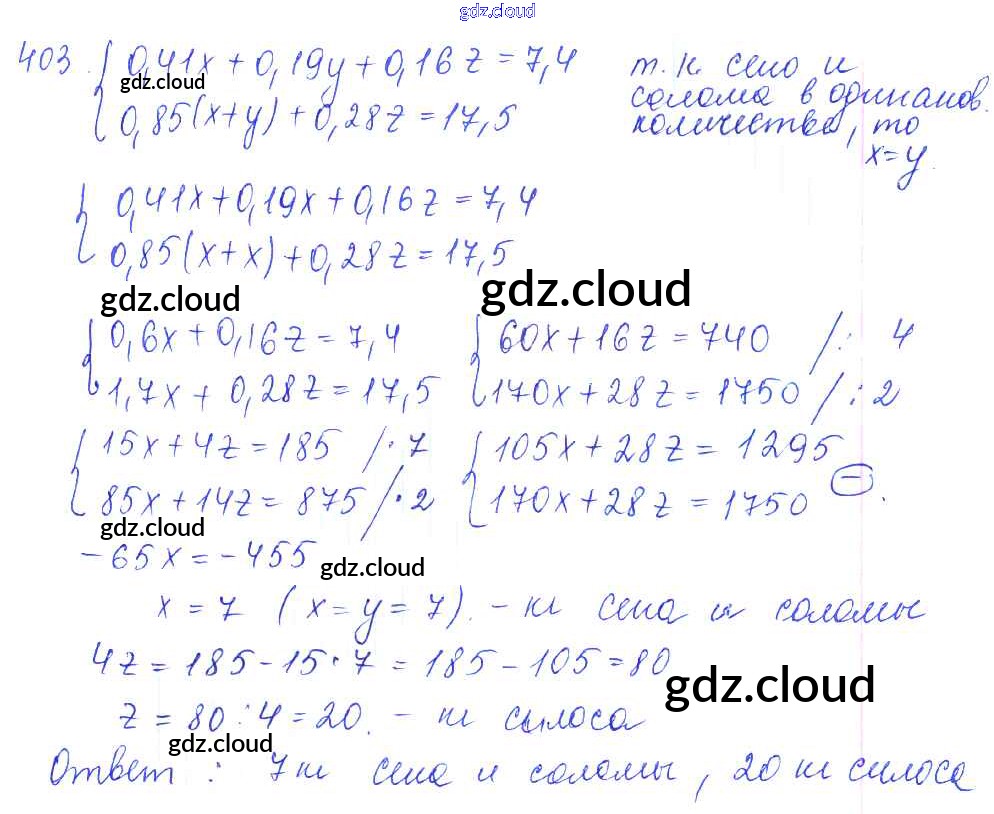 gdz.cloud
403 { 0,41x + 0,19y + 0,16z = 7,4 т.к сено и
gdz.cloud
0,85(x+y) + 0,28z = 17,5 солома в одинаков.
количестве, то
x=y.
{ 0,41x+0,19x+0,16z = 7,4
0,85(x+x)+0,28z = 17,5
gdz.cloud gdz.cloud
{ 0,6x+0,16z = 7,4 { 60x+16z = 740 /: 4
1,7x + 0,28z = 17,5 170x+28z = 1750 /: 2
{ 15x+4z = 185 /· 7 { 105x+28z = 1295
85x+14z = 875 /· 2 170x+28z = 1750 (−).
gdz.cloud
-65x = -455 gdz.cloud
x = 7 (x=y=7). - кг сена и соломы
4z = 185-15·7 = 185-105 = 80
gdz.cloud
z = 80:4 = 20. - кг силоса
gdz.cloud
Ответ: 7кг сена и соломы, 20 кг силоса